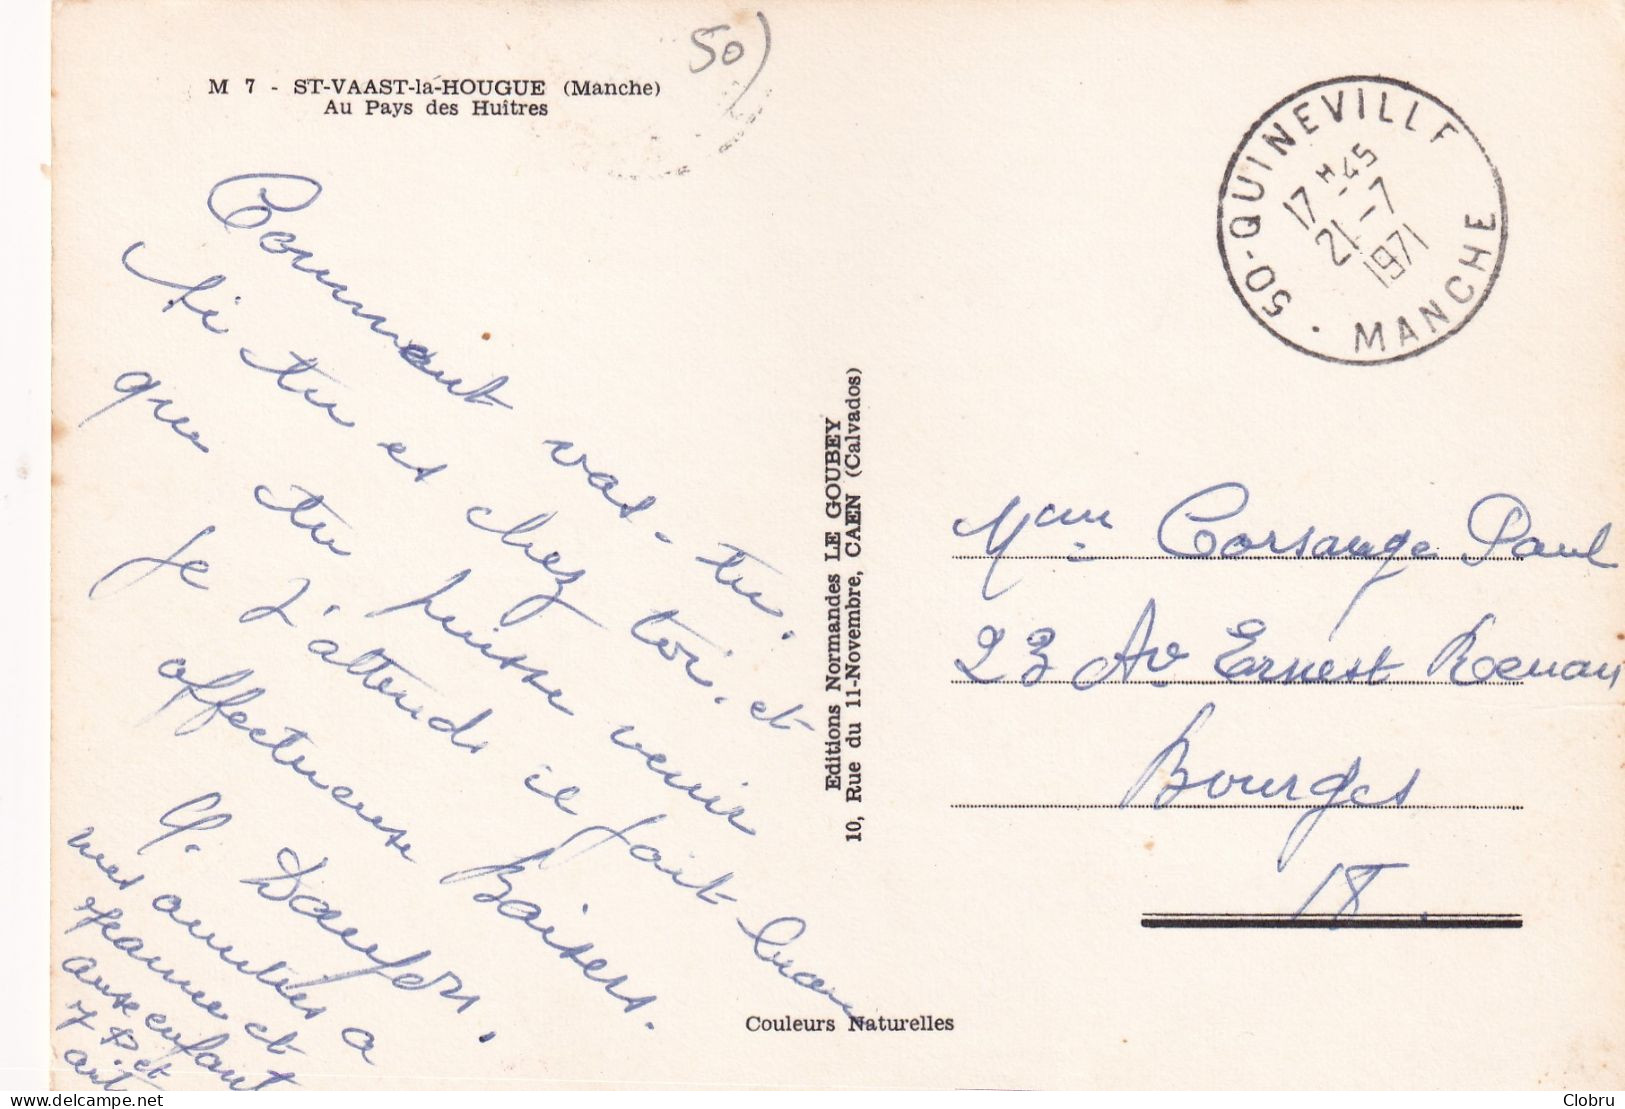 50)
M 7 - ST-VAAST-la-HOUGUE (Manche)
Au Pays des Huîtres
Comment vas-tu.
Si tu es chez toi. et
que tu puisse venir
Je t'attends il fait beau
affectueuse Baisers.
G. Daufon.
mes amitiés a
Jeanne et
aux enfant
J P. et
Editions Normandes LE GOUBEY
10, Rue du 11-Novembre, CAEN (Calvados)
50-QUINEVILLE
17 H 45
21-7
1971
MANCHE
Mme Corsange Paul
23 Av Ernest Renan
Bourges
18.
Couleurs Naturelles
delcampe.net
Clobru